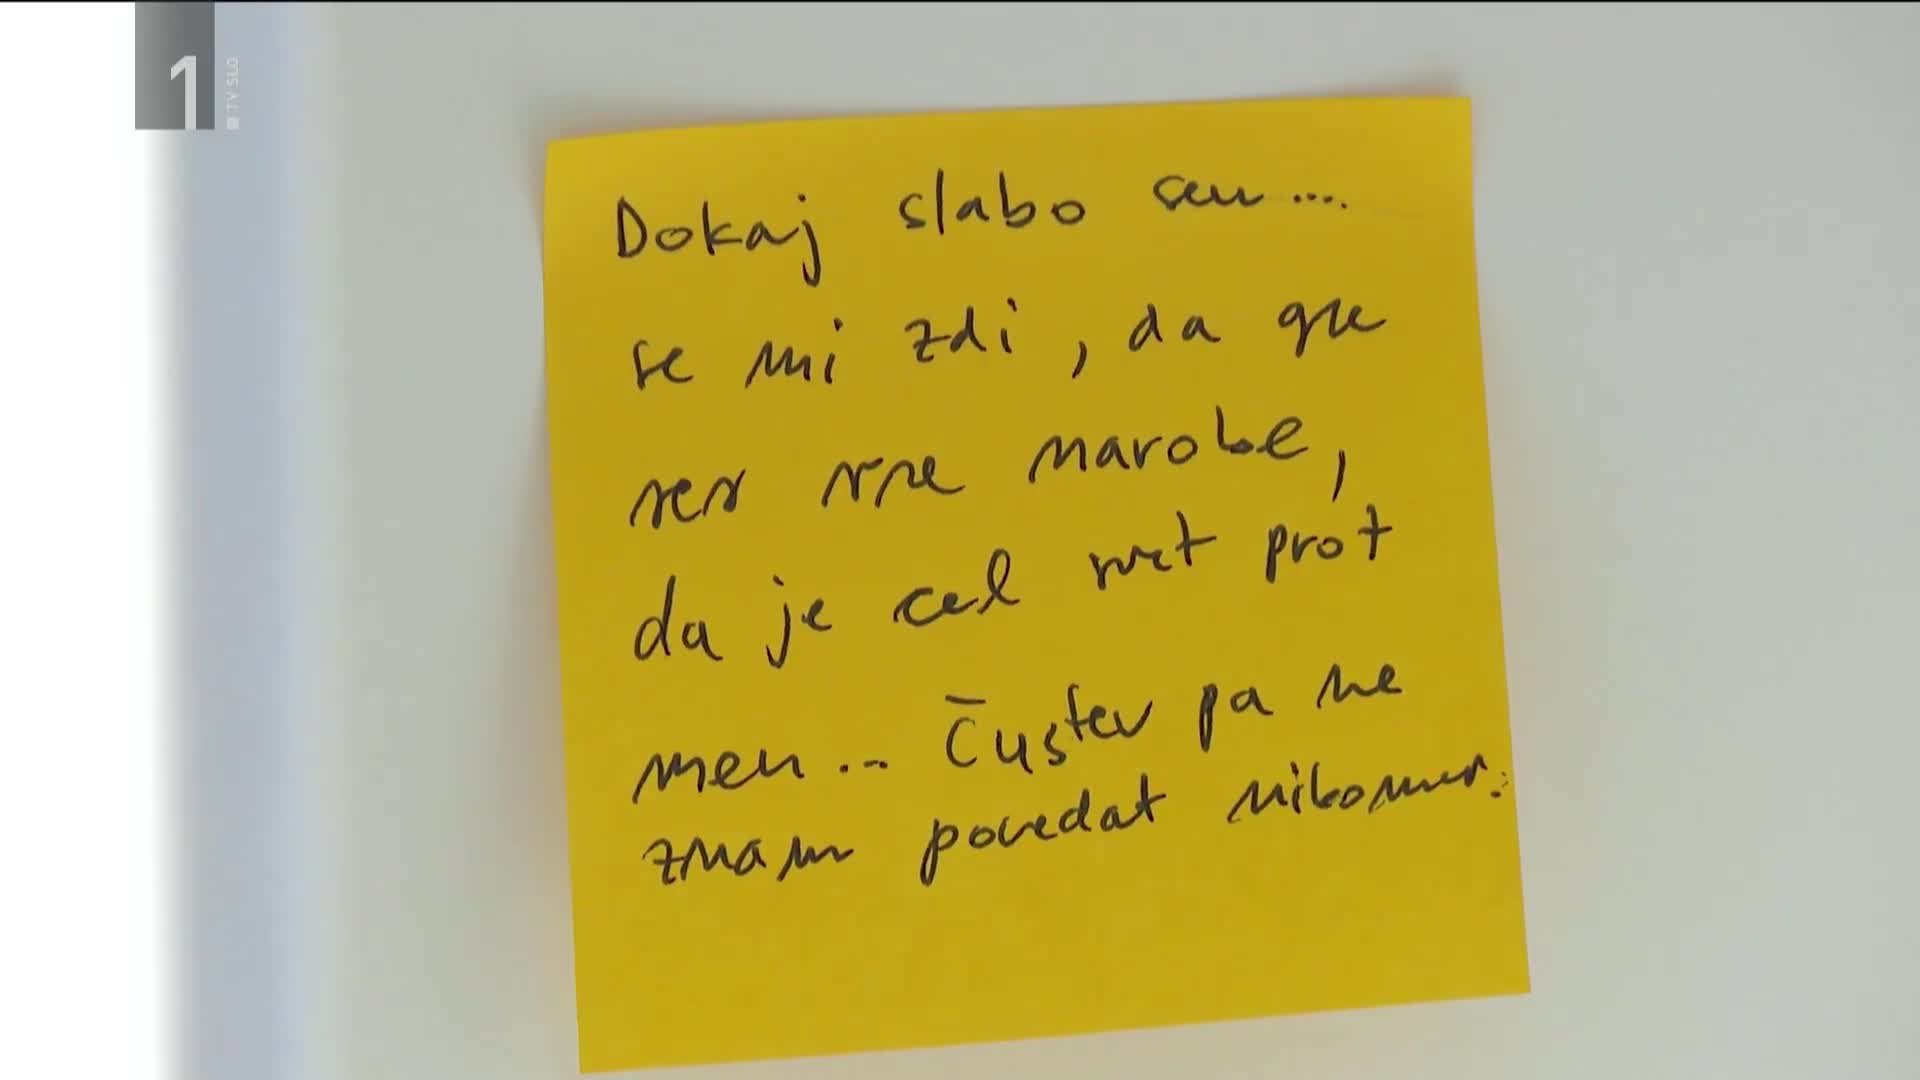 1
TV SLO
Dokaj slabo sem....
se mi zdi, da gre
res vse narobe,
da je cel svet prot
men... Čustev pa ne
znam povedat nikomur.